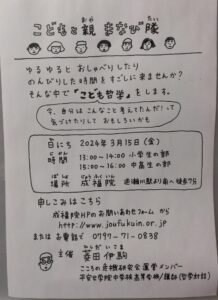 こどもと親 まなび隊
おや
たい
ゆるゆると おしゃべりしたり
のんびりした時間をすごしに来ませんか？
そんな中で『こども哲学』をします。
今、自分はこんなこと考えてたんだ！って
気づけたりしておもしろいかも
日にち 2024年3月15日(金)
時間 13:00〜14:00 小学生の部
15:00〜16:00 中高生の部
じょうふくいん
場所 成福院 逆瀬川駅より南へ徒歩7分
申しこみはこちら
成福院HPのお問いあわせフォーム から
http://www.joufukuin.or.jp
またはお電話で 0797-71-0838
主催
こころの危機研究会運営メンバー